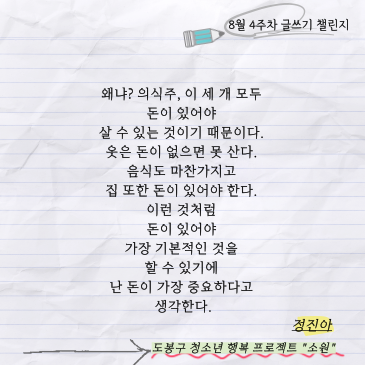 8월 4주차 글쓰기 챌린지
왜냐? 의식주, 이 세 개 모두
돈이 있어야
살 수 있는 것이기 때문이다.
옷은 돈이 없으면 못 산다.
음식도 마찬가지고
집 또한 돈이 있어야 한다.
이런 것처럼
돈이 있어야
가장 기본적인 것을
할 수 있기에
난 돈이 가장 중요하다고
생각한다.
정진아
도봉구 청소년 행복 프로젝트 "소원"